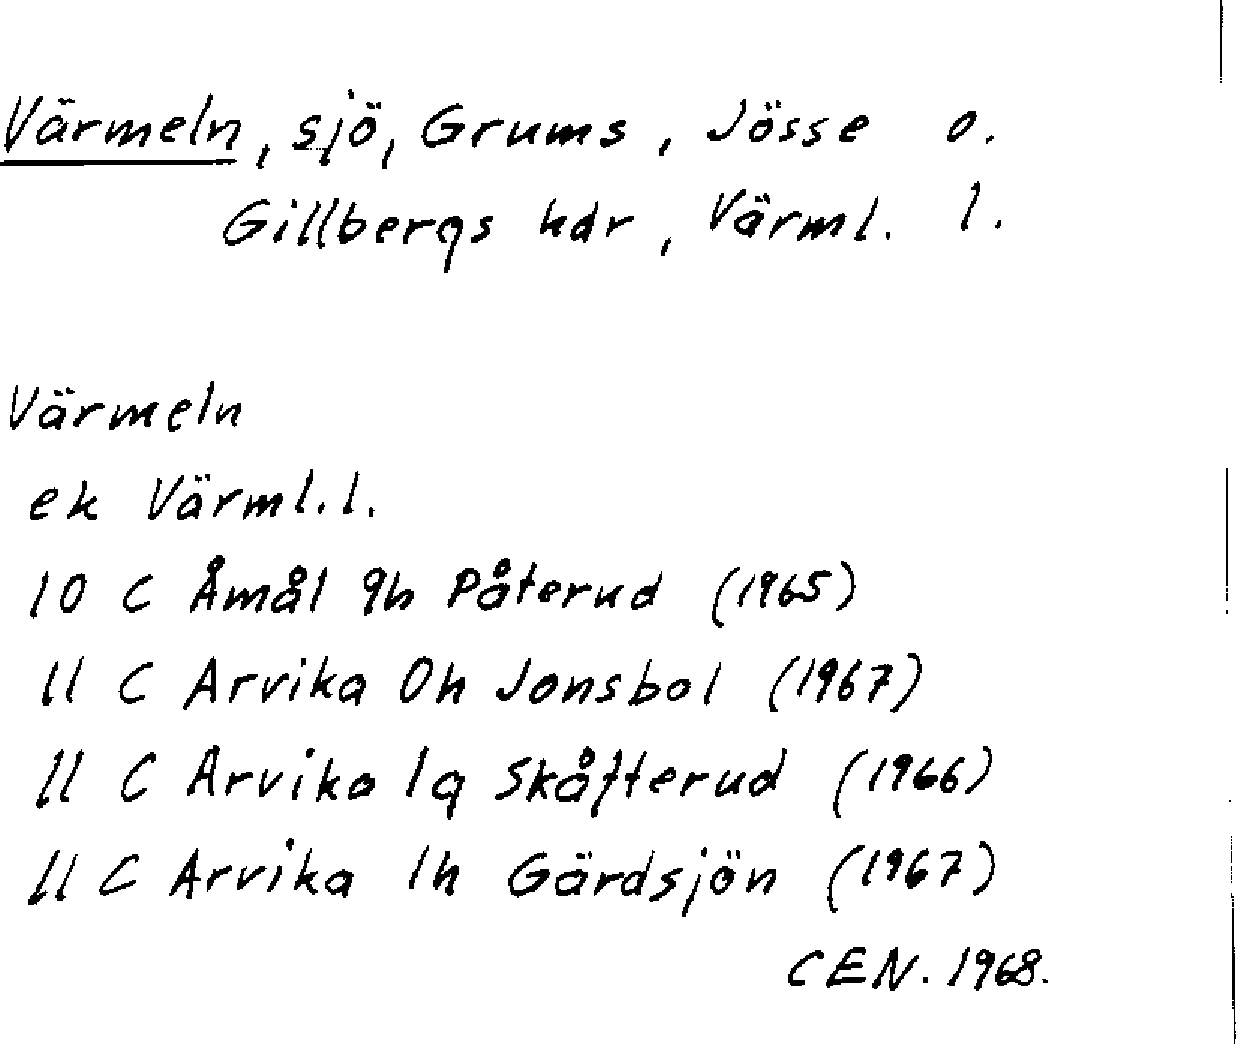 Värmeln, sjö, Grums, Jösse o.
Gillbergs hdr, Värml. l.
Värmeln
ek Värml. l.
10 C Åmål 9h Påterud (1965)
11 C Arvika 0h Jonsbol (1967)
11 C Arvika 1g Skåfterud (1966)
11 C Arvika 1h Gärdsjön (1967)
CEN. 1968.